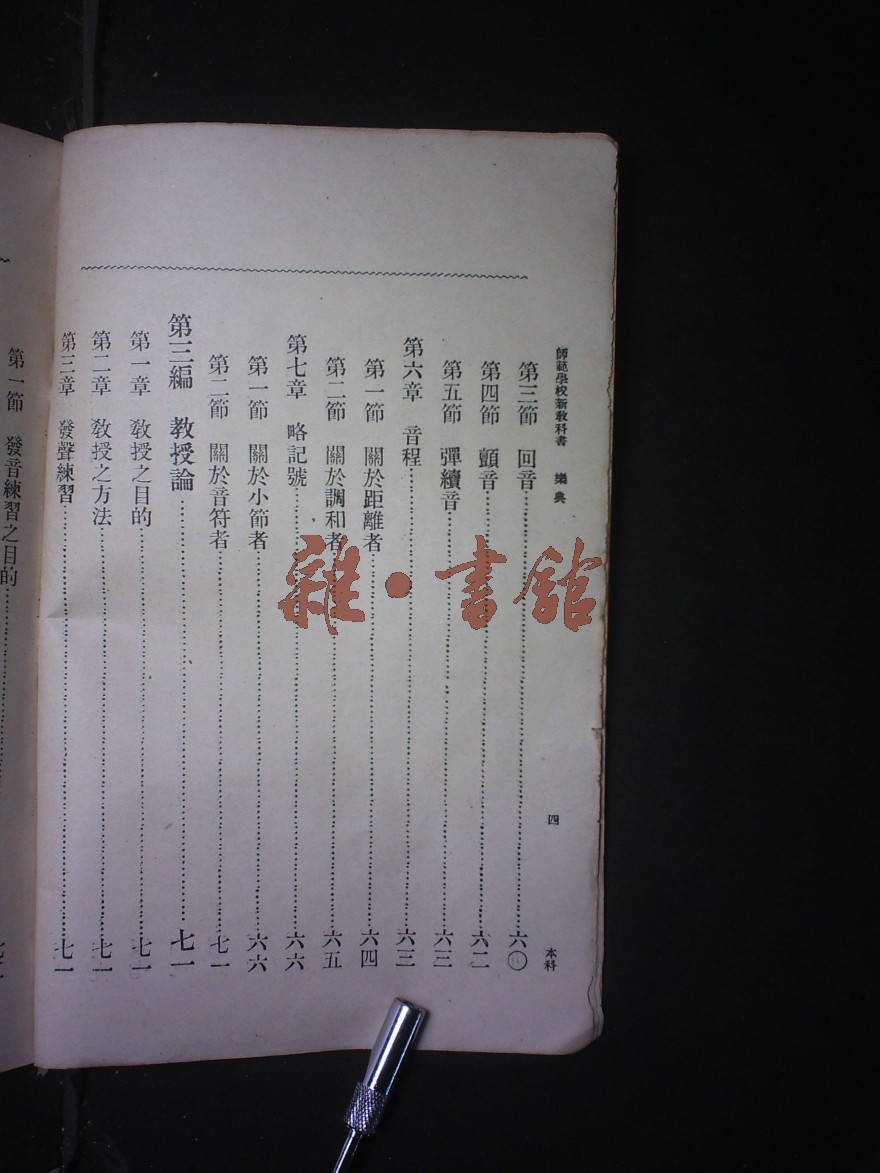 師範學校新教科書　樂典　四　本科
第三節　回音……六〇
第四節　顫音……六二
第五節　彈續音……六三
第六章　音程……六三
第一節　關於距離者……六四
第二節　關於調和者……六五
第七章　略記號……六六
第一節　關於小節者……六六
第二節　關於音符者……七一
第三編　教授論……七一
第一章　教授之目的……七一
第二章　教授之方法……七一
第三章　發聲練習……七一
第一節　發音練習之目的……
雜·書館